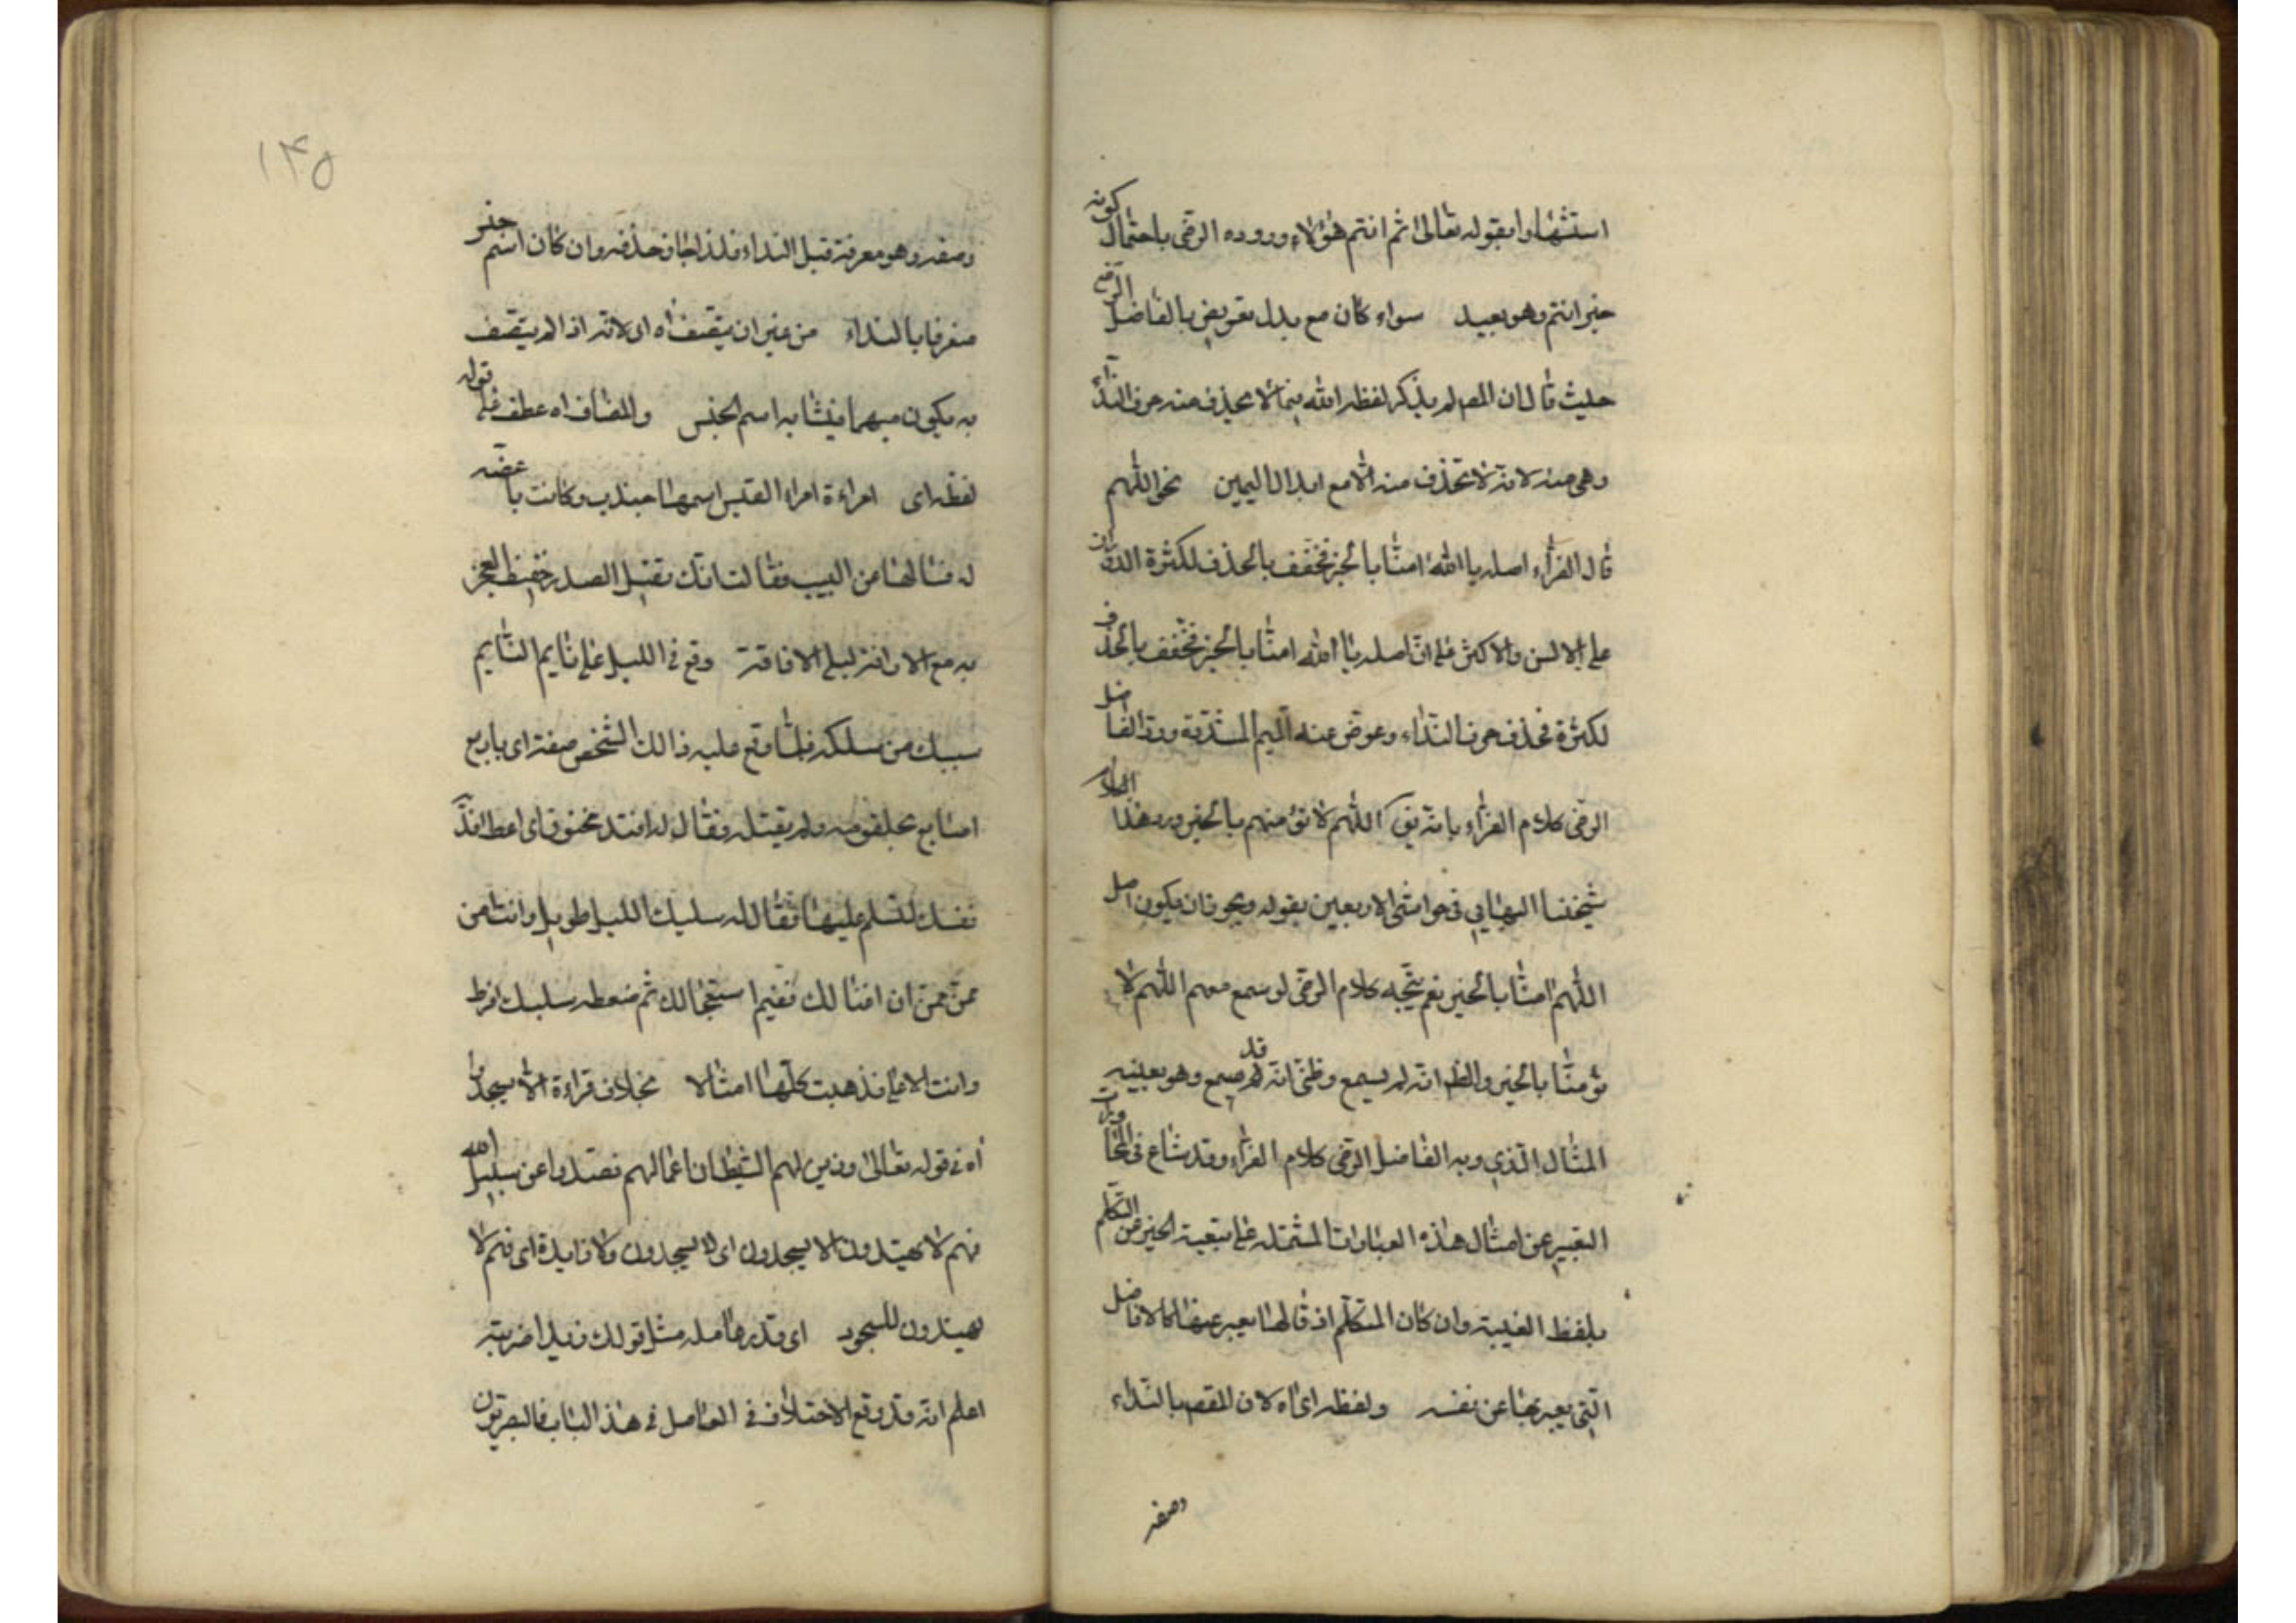 استشهادا بقوله تعالى ثم انتم هؤلاء ورده الرضى باحتمال كونه
خبر انتم وهو بعيد سواء كان مع بدل تعريض بالفاضل الرضى
حيث قال ان المصـ لم يذكر لفظ الله فيما لا يحذف منه حرف النداء
وهى منه لانه لا تحذف منه الا مع ابدال الميمين نحو اللهم
قال الفراء اصله يا الله امنا بالخير فخفف بالحذف لكثرة الدوران
على الالسن والاكثر على ان اصله يا الله امنا بالخير فخفف بالحذف
لكثرة فحذف حرف النداء وعوض عنه الميم المشددة ورد الفاضل
الرضى كلام الفراء بانه يق اللهم لا تؤمنهم بالخير ورد هذا الكلام
شيخنا البهايى فى حواشى الاربعين بقوله ويجوز ان يكون اصل
اللهم امنا بالخير نعم يتجه كلام الرضى لو سمع منهم اللهم لا
تؤمنا بالخير والظ انه لم يسمع وظنى انه قد سمع وهو بعينه
المثال الذى رد به الفاضل الرضى كلام الفراء وقد شاع فى المحاورات
التعبير عن امثال هذه العبارات المشتملة على تبعية الخبر عن التكلم
بلفظ الغيبة وان كان المتكلم اذ قالها يعبر عنها كالافاضل
التى يعبر بها عن نفسه ولفظ اى اه لان المقصـ بالنداء
وصفه
١٤٥
وصفه وهو معرفة قبل النداء فلذا جاز حذفه وان كان اسم جنس
متعرفا بالنداء من غير ان يتصف اه اى لانه اذا لم يتصف
به يكون مبهما فيشابه اسم الجنس والمضاف اه عطف على قوله
لفظ اى امراءة امراء القيس اسمها جندب وكانت باغضه
له فسالها من السبب فقالت انك ثقيل الصدر خفيف العجز
سريع الاراقة بطئ الافاقة وقع فى الليل على نايم النايم
سبيك من سلكه فلما وقع عليه ذالك الشخص صفة اى
اصابع بحلقومه ولم يقتله فقال له افتد مخنوق اى اعط افتد
نفسك لتسلم عليها فقال له سليك الليل طويل وانت من
ممن ان افتالك ثم ضغطه سليك
وانت الاعلى فذهبت كلها امثالا بخلاف قراءة الا يسجدوا
اه فى قوله تعالى وزين لهم الشيطان اعمالهم فصدوا عن سبيل الله
فهم لا يهتدون الا يسجدون اى لا يسجدون ولا زايدة اى فهم لا
يهتدون للسجود اى قدر عامله مثل قولك زيدا ضربته
اعلم انه قد وقع الاختلاف فى العامل فى هذ الباب فالبصريون